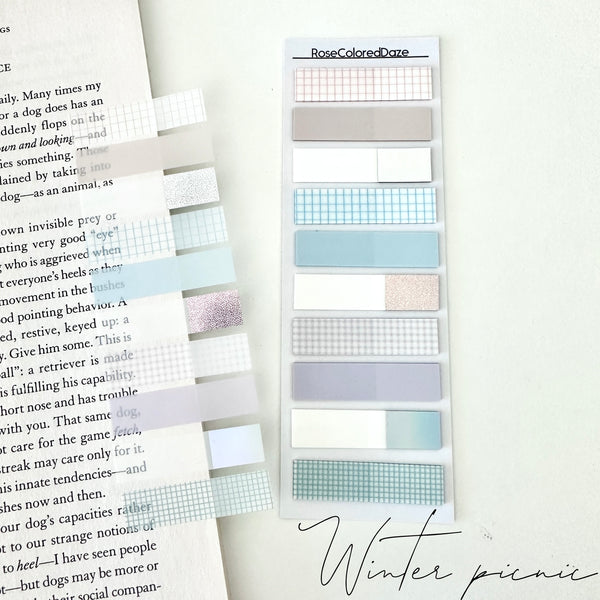 GS
CE
aily. Many times my
or a dog does has an
ddenly flops on the
own and looking—and
ies something. Those
lained by taking into
dog—as an animal, as
own invisible prey or
nting very good "eye"
g who is aggrieved when
t everyone's heels as they
movement in the bushes
od pointing behavior. A
ed, restive, keyed up: a
y. Give him some. This is
ball": a retriever is made
is fulfilling his capability.
hort nose and has trouble
with you. That same dog,
ot care for the game fetch,
streak may care only for it.
his innate tendencies—and
shes now and then.
our dog's capacities rather
ot to our strange notions of
to heel—I have seen people
t—but dogs may be more or
their social compan-
RoseColoredDaze
Winter picnic